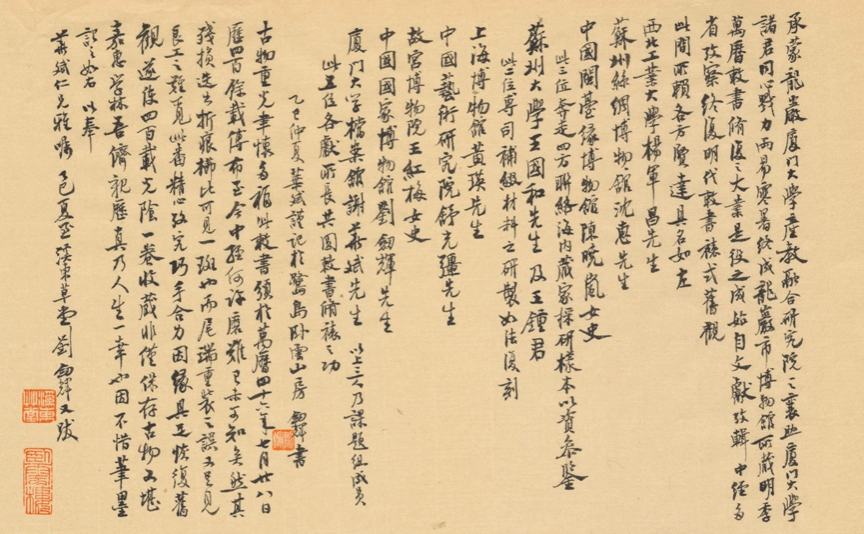 承蒙龍巖厦门大學產教融合研究院之襄助厦门大學
諸君同心戮力两易寒暑終成龍巖市博物館所藏明季
萬曆敕書脩復之大業是役之成始自文獻攷輯中經多
省攷察終復明代敕書裱式舊觀
此間所賴各方賢達具名如左
西北工業大學楊軍昌先生
蘇州絲綢博物館沈惠先生
中國閩臺缘博物館陳曉嵐女史
此三位奔走四方聯絡海内藏家採研樣本以資参鉴
蘇州大學王國和先生及王鍾君
此二位專司補綴材料之研製如法復刻
上海博物館黄瑛先生
中國藝術研究院舒光彊先生
故宫博物院王紅梅女史
中國國家博物館劉劒輝先生
厦门大学檔案館謝華斌先生 以上三人乃課題组成員
此五位各獻所長共圖敕書脩裱之功
乙巳仲夏華斌謹記於鷺島卧雲山房 劒輝書
古物重光幸懷多福此敕書頒於萬曆四十六年七月廿八日
歷四百餘載傳布至今中经何许磨難已未可知矣然其
残損迭出折痕櫛比可見一斑也而尾端重裝之誤又足見
良工之難覓此番精心攷究巧手合力因缘具足恢復舊
觀遂続四百載光陰一卷收藏非僅保存古物又堪
嘉惠学林吾儕親歷真乃人生一幸也因不惜筆墨
記之如右以奉
華斌仁兄雅嘱 乙巳夏至溪東草堂劉劒輝又跋